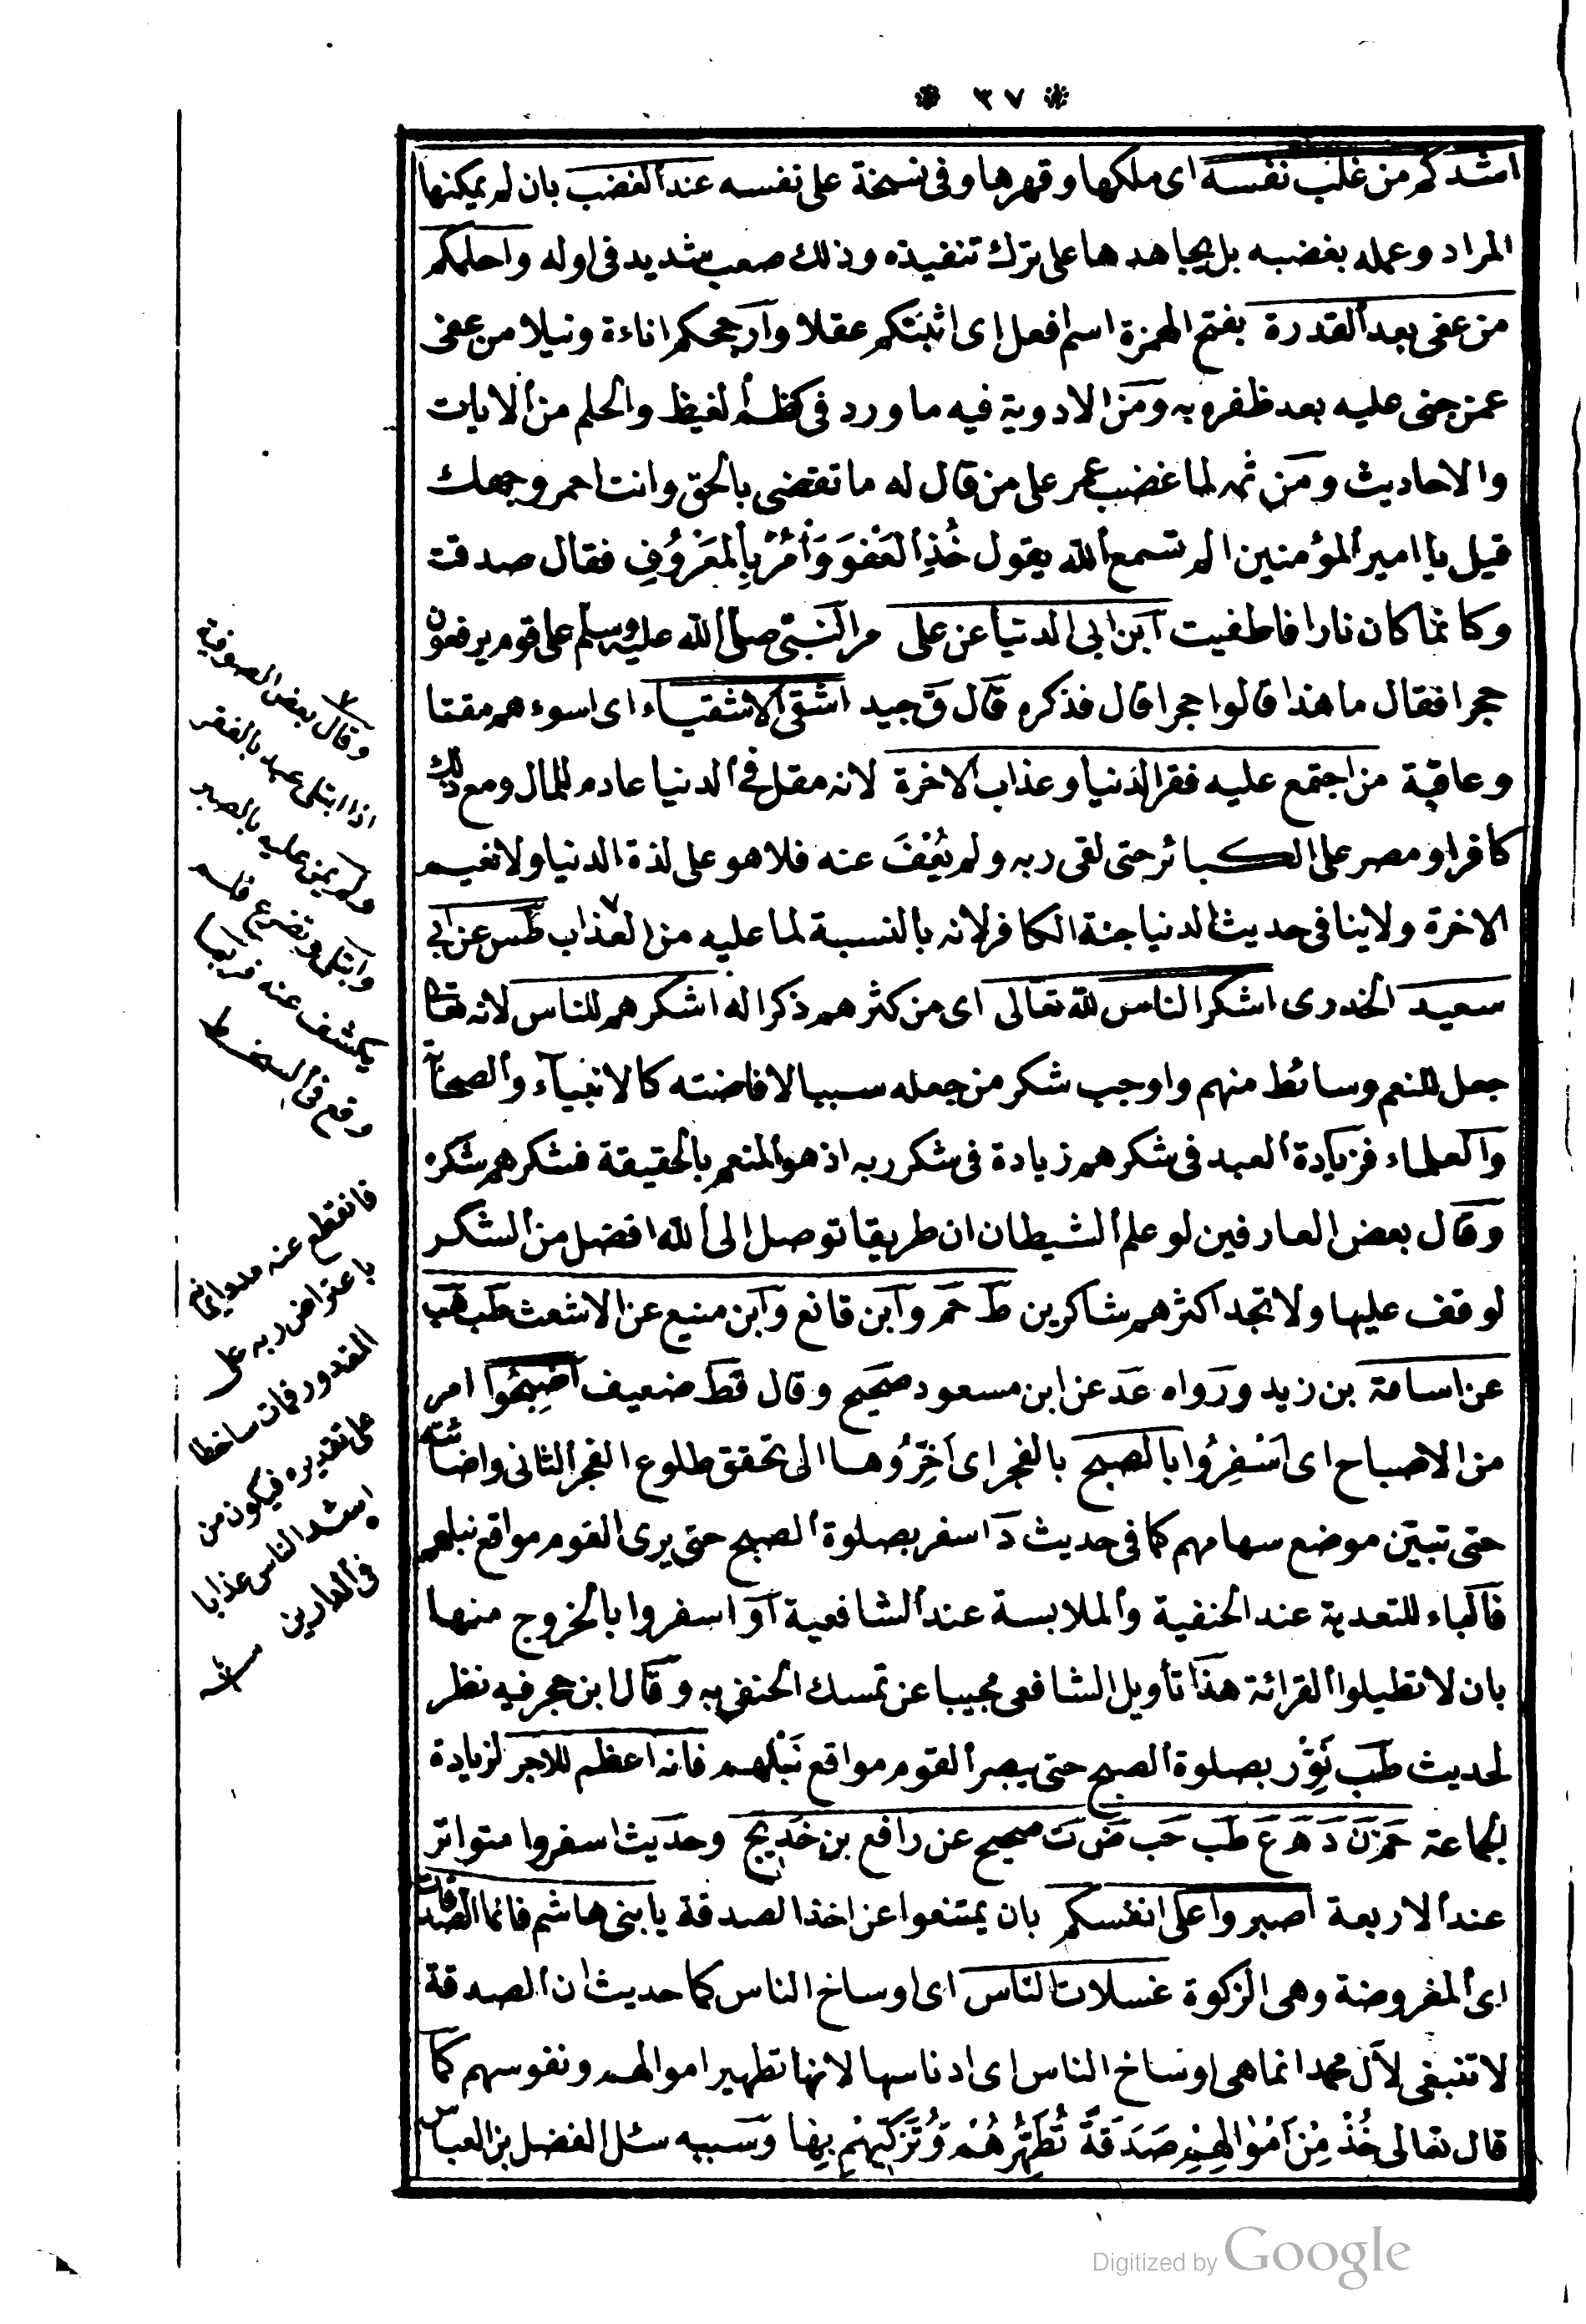 * ٣٧ *
اشدكم من غلب نفسه اى ملكها وقهرها وفى نسخة على نفسه عند الغضب بان لم يمكنها
المراد وعمله بغضبه بل يجاهدها على ترك تنفيذه وذلك صعب شديد فى اوله واحلمكم
من عفى بعد القدرة بفتح الهمزة اسم افعل اى اثبتكم عقلا وارجحكم اناءة ونيلا من عفى
عمن جنى عليه بعد ظفره به ومن الادوية فيه ما ورد فى كظم الغيظ والحلم من الايات
والاحاديث ومن ثمه لما غضب عمر على من قال له ما تقضى بالحق وانت احمر وجهك
قيل يا امير المؤمنين الم تسمع الله يقول خُذِ الْعَفْوَ وَأْمُرْ بِالْمَعْرُوفِ فقال صدقت
وكانما كان نارا فاطفيت ابن ابى الدنيا عن على مر النبى صلى الله عليه وسلم على قوم يرفعون
حجرا فقال ما هذا قالوا حجرا قال فذكره قال ق جيد اشقى الاشقياء اى اسوءهم مقتا
وعاقبة من اجتمع عليه فقر الدنيا وعذاب الاخرة لانه مقل فى الدنيا عادم للمال ومع ذلك
كافرا ومصر على الكبائر حتى لقى ربه ولم يُعْفَ عنه فلا هو على لذة الدنيا ولا نعيم
الاخرة ولا ينافى حديث الدنيا جنة الكافر لانه بالنسبة لما عليه من العذاب ٧ طس عن ابى
سعيد الخدرى اشكر الناس لله تعالى اى من كثرهم ذكرا له اشكرهم للناس لانه تعالى
جعل للنعم وسائط منهم واوجب شكر من جعله سببا لافاضته كالانبيآء والصحابة
والعلماء فزيادة العبد فى شكرهم زيادة فى شكر ربه اذ هو المنعم بالحقيقة فشكرهم شكره
وقال بعض العارفين لو علم الشيطان ان طريقا توصل الى الله افضل من الشكر
لوقف عليها ولا تجد اكثرهم شاكرين ط حم وابن قانع وابن منيع عن الاشعث طب هب
عن اسامة بن زيد ورواه عد عن ابن مسعود صحيح وقال قط ضعيف اصْبِحُوا امر
من الاصباح اى اَسْفِرُوا بالصبح بالفجر اى اَخِّرُوها الى تحقق طلوع الفجر الثانى واضائته
حتى تبيّن موضع سهامهم كما فى حديث د اسفر بصلوة الصبح حتى يرى القوم مواقع نبلهم
فالباء للتعدية عند الحنفية والملابسة عند الشافعية او اسفروا بالخروج منها
بان لا تطيلوا القرائة هذا تأويل الشافعى مجيبا عن تمسك الحنفى به وقال ابن حجر فيه نظر
لحديث طب نَوِّر بصلوة الصبح حتى يبصر القوم مواقع نَبْلهم فانه اعظم للاجر لزيادة
الجماعة حم ن د ه ع طب حب ض ت صحيح عن رافع بن خديج وحديث اسفروا متواتر
عند الاربعة اصبروا على انفسكم بان يمتنعوا عن اخذ الصدقة يا بنى هاشم فانما الصدقات
اى المفروضة وهى الزكوة غسلات الناس اى اوساخ الناس كما حديث ان الصدقة
لا تنبغى لآل محمد انما هى اوساخ الناس اى ادناسها لانها تطهير اموالهم ونفوسهم كما
قال تعالى خُذْ مِنْ اَمْوٰالِهِمْ صَدَقَةً تُطَهِّرُهُمْ وَتُزَكِّيهِمْ بِهٰا وسببه سئل الفضل بن العباس
٧
وقال بعض الصوفية
اذا ابتلى عبد بالفقر
ولم يمن عليه بالصبر
وابتلى وتضرع فلم
يكشف عنه فربما
وقع فى السخط
فانقطع عنه مدد ايمانه
باعتراض ربه على
المقدور فمات ساخطا
على تقديره فيكون من
اشد الناس عذابا
فى الدارين
منه
Digitized by Google